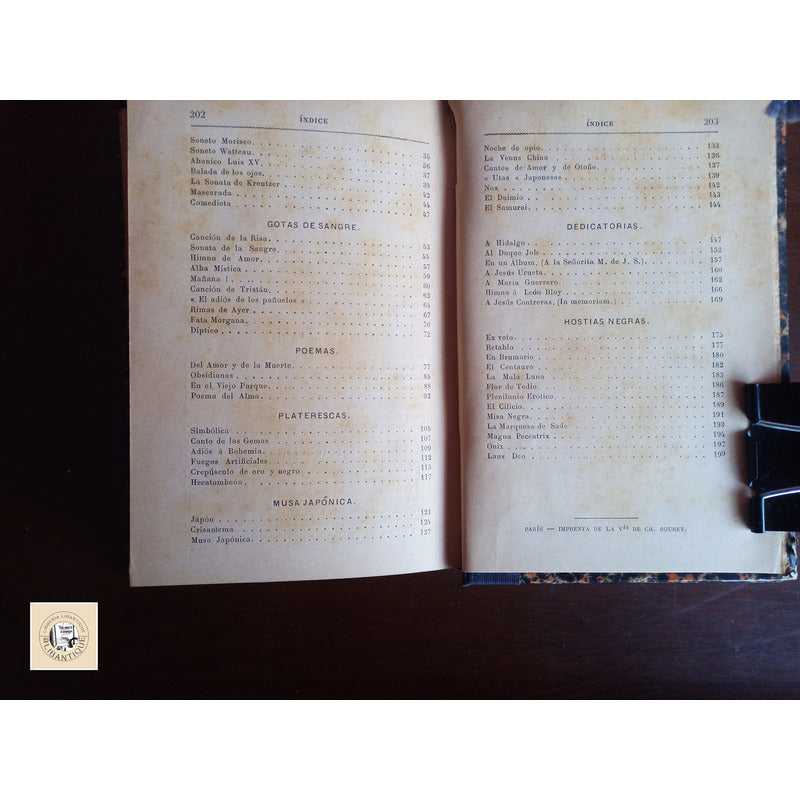 202
ÍNDICE
Soneto Morisco. 35
Soneto Watteau. 36
Abanico Luis XV. 37
Balada de los ojos. 39
La Sonata de Kreutzer 42
Mascarada 44
Comedieta 47
GOTAS DE SANGRE.
Canción de la Risa. 53
Sonata de la Sangre. 55
Himno de Amor. 57
Alba Mística 59
Mañana ! 60
Canción de Tristán. 62
« El adiós de los pañuelos » 64
Rimas de Ayer 67
Fata Morgana. 70
Díptico 72
POEMAS.
Del Amor y de la Muerte. 77
Obsidianas 85
En el Viejo Parque. 88
Poema del Alma. 92
PLATERESCAS.
Simbólica 105
Canto de las Gemas 107
Adiós á Bohemia. 109
Fuegos Artificiales 112
Crepúsculo de oro y negro 115
Hecatombeón. 117
MUSA JAPÓNICA.
Japón 121
Crisantema 124
Musa Japónica. 127
ÍNDICE
203
Noche de opio. 133
La Venus China 136
Cantos de Amor y de Otoño 137
« Utas » Japonesas 139
Nox 142
El Daimio 143
El Samurai. 144
DEDICATORIAS.
A Hidalgo 147
Al Duque Job 152
En un Album, (A la Señorita M. de J. S.) 157
A Jesús Urueta 160
A María Guerrero. 162
Himno á León Bloy 166
A Jesús Contreras, (In memoriam.) 169
HOSTIAS NEGRAS.
Ex voto 175
Retablo 177
En Brumario 180
El Centauro 182
La Mala Luna 183
Flor de Tedio 186
Plenilunio Erótico 187
El Cilicio 189
Misa Negra. 191
La Marquesa de Sade 193
Magna Peccatrix 194
Onix 197
Laus Deo 199
PARÍS — IMPRENTA DE LA Vda DE CH. BOURET.
LIBRERÍA LIBANTIQUE
LIBANTIQUE